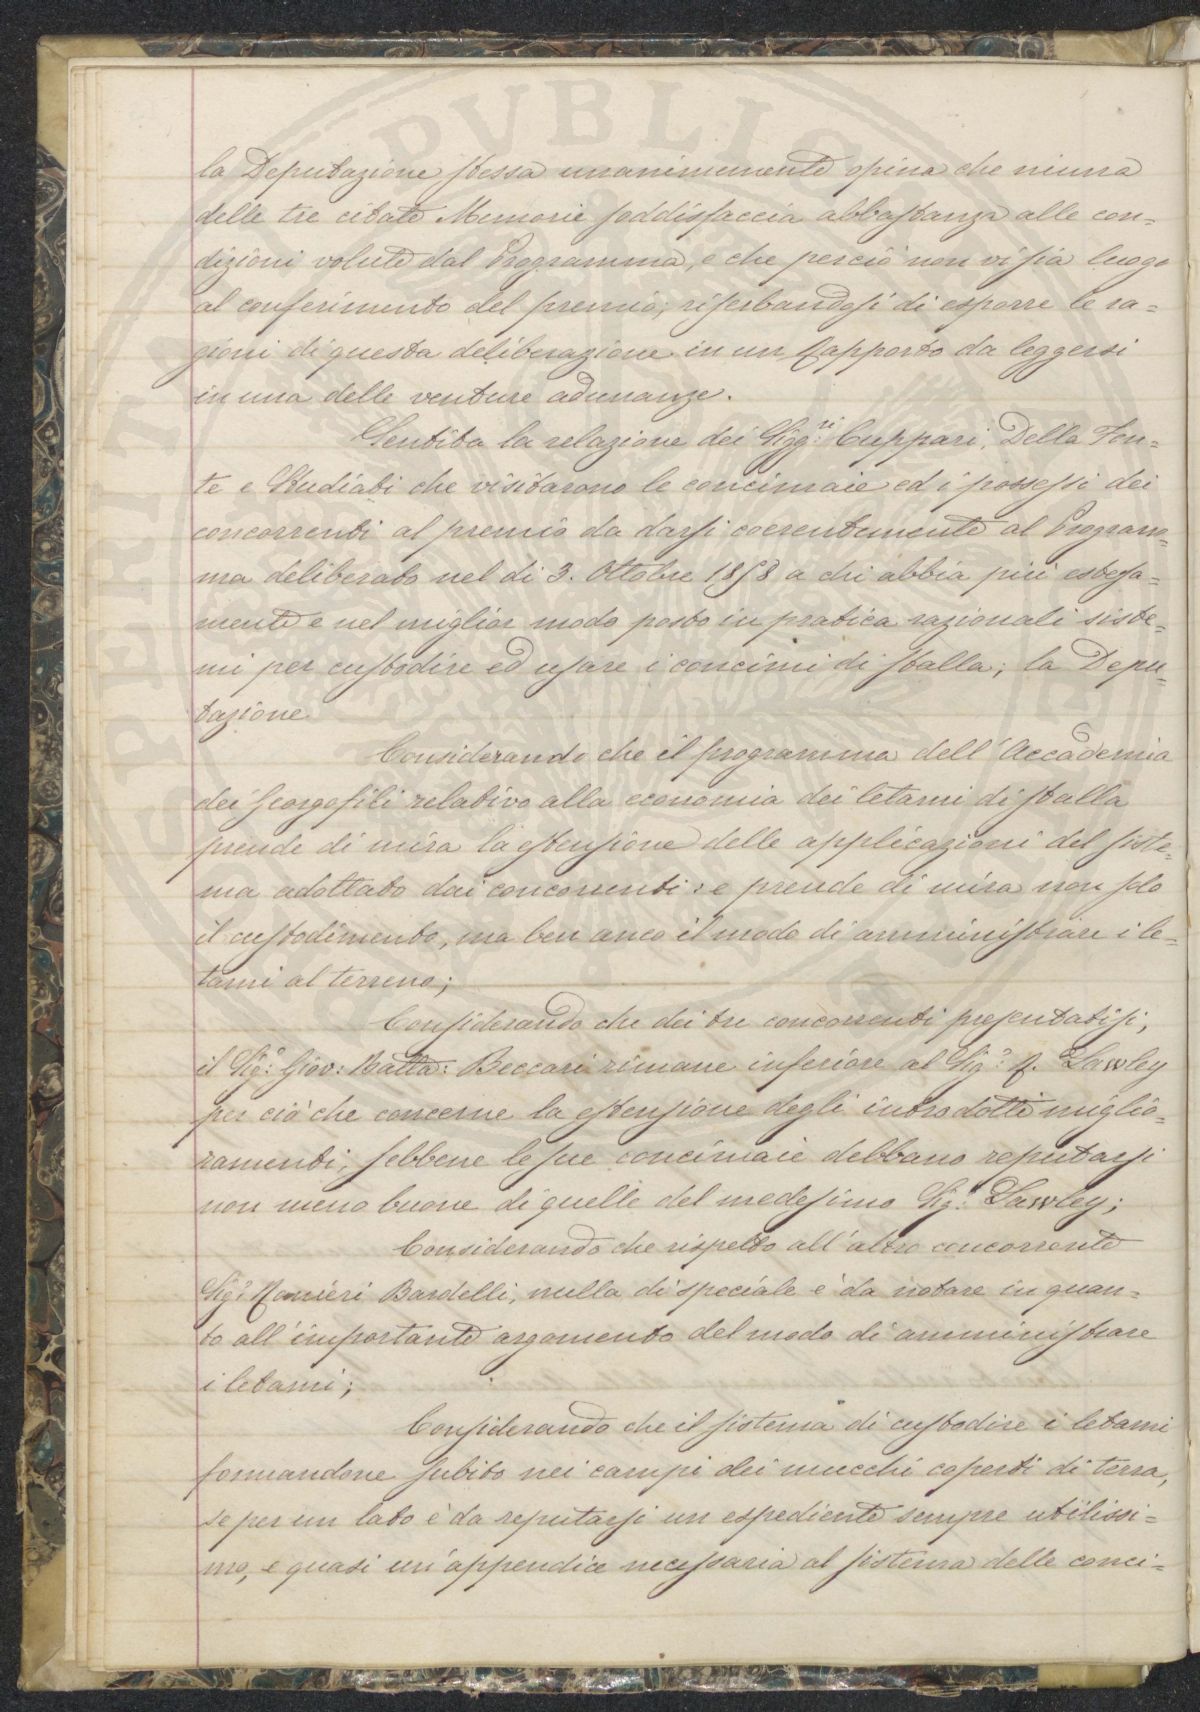 la Deputazione stessa unanimemente opina che niuna
delle tre citate Memorie soddisfaccia abbastanza alle con=
dizioni volute dal Programma, e che perciò non vi sia luogo
al conferimento del premio; riserbandosi di esporre le ra=
gioni di questa deliberazione in un Rapporto da leggersi
in una delle venture adunanze.
Sentita la relazione dei Sigg:ri Cuppari, Della Fon=
te e Studiati che visitarono le concimaie ed i possessi dei
concorrenti al premio da darsi coerentemente al Program=
ma deliberato nel di 3. Ottobre 1858 a chi abbia più estesa=
mente e nel miglior modo posto in pratica razionali siste=
mi per custodire ed usare i concimi di stalla; la Depu=
tazione
Considerando che il programma dell'Accademia
dei Georgofili relativo alla economia dei letami di stalla
prende di mira la estensione delle applicazioni del siste=
ma adottato dai concorrenti: e prende di mira non solo
il custodimento, ma ben anco il modo di amministrare i le=
tami al terreno;
Considerando che dei tre concorrenti presentatisi,
il Sig:e Giov: Batta: Beccari rimane inferiore al Sig:e R. Lawley
per ciò che concerne la estensione degli introdotti miglio=
ramenti, sebbene le sue concimaie debbano reputarsi
non meno buone di quelle del medesimo Sig:e Lawley;
Considerando che rispetto all'altro concorrente
Sig:e Ranieri Bardelli, nulla di speciale è da notare in quan=
to all'importante argomento del modo di amministrare
i letami;
Considerando che il sistema di custodire i letami
formandone subito nei campi dei mucchi coperti di terra,
se per un lato è da reputarsi un espediente sempre utilissi=
mo, e quasi un'appendice necessaria al sistema delle conci=
PVBLIC